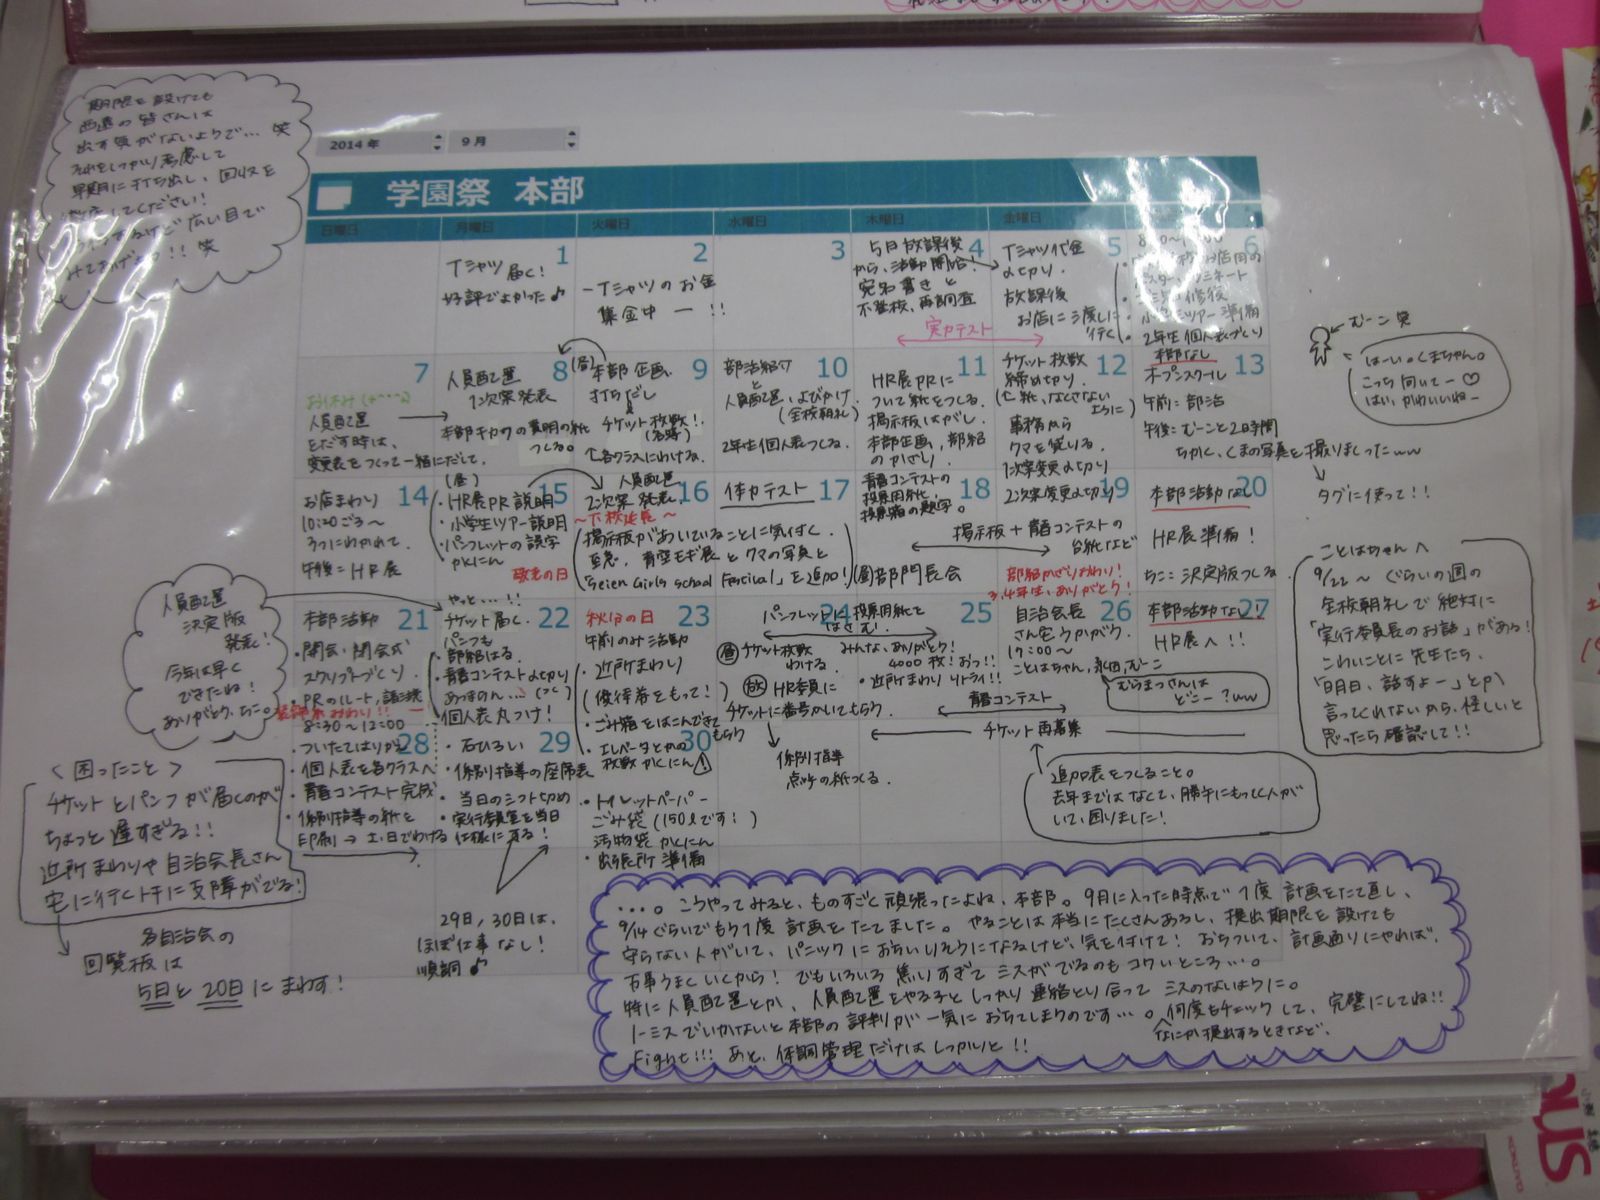 期限を設けても
西遠の皆さんは
出す気がないようで… 笑
それをしっかり考慮して
早期に打ち出し、回収を
してください!
広い目で
みてあげよう!! 笑
2014年
9月
学園祭 本部
日曜日 月曜日 火曜日 水曜日 木曜日 金曜日
1
Tシャツ届く!
好評でよかった♪
2
ーTシャツのお金
集金中 ー !!
3
4
5日放課後
から、活動開始!
宛名書きと
不登校、再調査
実力テスト
5
Tシャツ代金
〆切り.
放課後
お店に渡しに
行く
6
・小学生ツアー準備
・2年生個人表づくり
7
人員配置
をだす時は、
変更表をつくって一緒にだして。
8
人員配置
1次案発表
本部企画の説明の紙
つくる。
9
本部企画
打ちだし
チケット枚数!
(各時)
各クラスにわける.
10
部活紹介
と
人員配置、よびかけ
(全校朝礼)
2年生個人表つくる.
11
HR展PRに
ついて紙をつくる.
掲示板はがし.
本部企画,部紹
のかざり.
12
チケット枚数
締め切り.
(紙、なくさない
ように)
事務から
クマを借りる.
1次案変更〆切り
13
本部なし
オープンスクール
午前:部活
午後:むーこと2時間
ちかく、くまの写真を撮りましたww
タグに使って!!
14
お店まわり
10:30ごろ〜
3つにわかれて.
午後=HR展
15
(昼)
・HR展PR説明
・小学生ツアー説明
・パンフレットの誤字
かくにん
敬老の日
16
人員配置
2次案発表.
〜下校延長〜
掲示板があいていることに気付く.
至急、青空モギ展とクマの写真と
「Seien Girls school Festival」を追加!
17
体力テスト
18
青春コンテストの
投票用紙、
投票箱の題字。
掲示板+青春コンテストの
台紙など
部門長会
19
2次案変更〆切り
部紹かざりおわり!
3,4年生、ありがとう!
20
本部活動なし
HR展準備!
ちこ:決定版つくる
21
本部活動
・開会・閉会式
スクリプトづくり
22
やっと…!!
チケット届く.
パンフも
・部紹はる.
・青春コンテスト〆切り
個人表丸つけ!
23
秋分の日
午前のみ活動
・近所まわり
(優待券をもって!)
・ごみ箱をはこんできて
もらう
・エレベータとかの
枚数かくにん!
24
パンフレットに投票用紙を
はさむ!
チケット枚数
わける.
HR委員に
チケットに番号かいてもらう.
係別指導
点呼の紙つくる.
25
みんな、ありがとう!
4000枚!おっ!!
・近所まわりリトライ!!
青春コンテスト
チケット再募集
26
自治会長
さん宅うかがう.
17:00〜
ことはちゃん,永田,むーこ
むらまつさんは
どこー?ww
27
本部活動なし!
HR展へ!!
28
8:30〜12:00
・個人表を各クラスへ
・青春コンテスト完成
・係別指導の紙を
印刷→土日でわける
29
・石ひろい
・係別指導の座席表
・当日のシフト決め
・実行委員室を当日
仕様にする!
30
・トイレットペーパー
ごみ袋(150ℓです:)
汚物袋かくにん
・出張所準備
29日,30日は、
ほぼ仕事なし!
順調♪
人員配置
決定版
発表!
今年は早く
できたね!
ありがとう、ちこ。
<困ったこと>
チケットとパンフが届くのが
ちょっと遅すぎる!!
近所まわりや自治会長さん
宅に行くトキに支障がでる!
各自治会の
回覧板は
5日と20日にまわす!
むーこ笑
はーい。くまちゃん。
こっち向いてー♡
はい、かわいいねー
ことはちゃんへ
9/22〜ぐらいの週の
全校朝礼で絶対に
「実行委員長のお話」がある!
こわいことに先生たち、
「明日、話すよー」とか
言ってくれないから、怪しいと
思ったら確認して!!
追加表をつくること。
去年まではなくて、勝手にもってく人が
いて、困りました!
…。こうやってみると、ものすごく頑張ったよね、本部。9月に入った時点で1度計画をたて直し、
9/14ぐらいでもう1度計画をたてました。やることは本当にたくさんあるし、提出期限を設けても
守らない人がいて、パニックにおちいりそうになるけど、気を付けて!おちついて、計画通りにやれば、
万事うまくいくから!でもいろいろ焦りすぎてミスがでるのもコワいところ…。
特に人員配置とか、人員配置をやる子としっかり連絡とり合ってミスのないように。
1ミスでいかないと本部の評判が一気におちてしまうのです…。何度もチェックして、完璧にしてね!!
なにか提出するときなど、
Fight!!! あと、体調管理だけはしっかりと!!